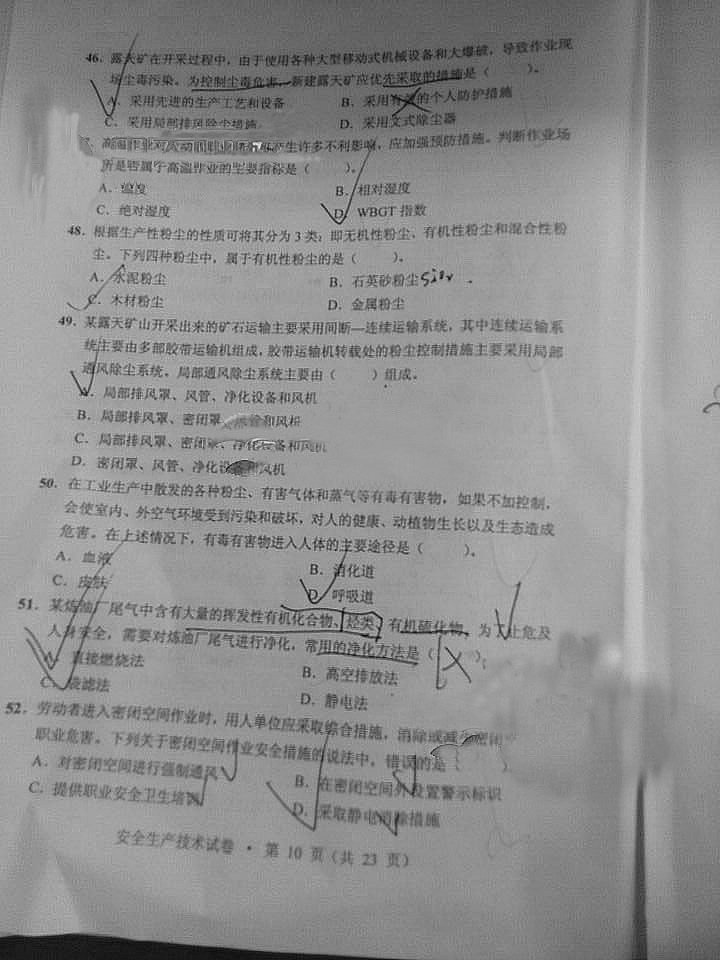 46．露天矿在开采过程中，由于使用各种大型移动式机械设备和大爆破，导致作业现
场尘毒污染。为控制尘毒危害，新建露天矿应优先采取的措施是（　　）。
A．采用先进的生产工艺和设备　B．采用有效的个人防护措施
C．采用局部排风除尘措施　D．采用文式除尘器
高温作业对人
生许多不利影响，应加强预防措施。判断作业场
所是否属于高温作业的主要指标是（　　）。
A．温度　B．相对湿度
C．绝对湿度　D．WBGT 指数
48．根据生产性粉尘的性质可将其分为 3 类：即无机性粉尘、有机性粉尘和混合性粉
尘。下列四种粉尘中，属于有机性粉尘的是（　　）。
A．水泥粉尘　B．石英砂粉尘
C．木材粉尘　D．金属粉尘
49．某露天矿山开采出来的矿石运输主要采用间断—连续运输系统，其中连续运输系
统主要由多部胶带运输机组成，胶带运输机转载处的粉尘控制措施主要采用局部
通风除尘系统。局部通风除尘系统主要由（　　）组成。
A．局部排风罩、风管、净化设备和风机
B．局部排风罩、密闭罩、风管和风机
C．局部排风罩、密闭罩、净化设备和风机
D．密闭罩、风管、净化设备和风机
50．在工业生产中散发的各种粉尘、有害气体和蒸气等有毒有害物，如果不加控制，
会使室内、外空气环境受到污染和破坏，对人的健康、动植物生长以及生态造成
危害。在上述情况下，有毒有害物进入人体的主要途径是（　　）。
A．血液　B．消化道
C．皮肤　D．呼吸道
51．某炼油厂尾气中含有大量的挥发性有机化合物、烃类、有机硫化物，为了止危及
人身安全，需要对炼油厂尾气进行净化，常用的净化方法是（　　）。
A．直接燃烧法　B．高空排放法
C．袋滤法　D．静电法
52．劳动者进入密闭空间作业时，用人单位应采取综合措施，消除或减少密闭
职业危害。下列关于密闭空间作业安全措施的说法中，错误的是（　　）
A．对密闭空间进行强制通风　B．在密闭空间外设置警示标识
C．提供职业安全卫生培训　D．采取静电消除措施
安全生产技术试卷 · 第 10 页（共 23 页）